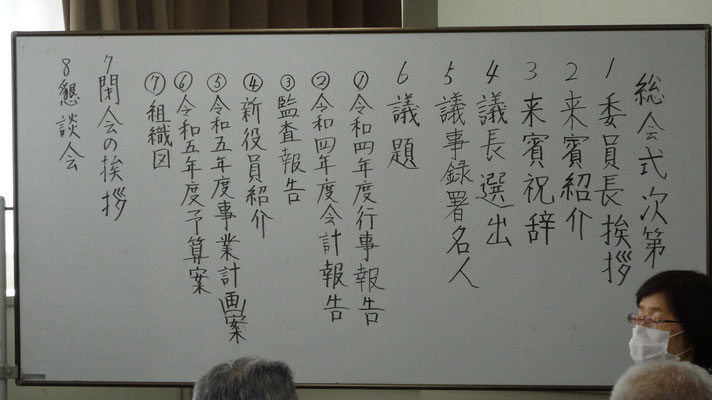 総会式次第
1委員長挨拶
2来賓紹介
3来賓祝辞
4議長選出
5議事録署名人
6議題
①令和四年度行事報告
②令和四年度会計報告
③監査報告
④新役員紹介
⑤令和五年度事業計画案
⑥令和五年度予算案
⑦組織図
7閉会の挨拶
8懇談会